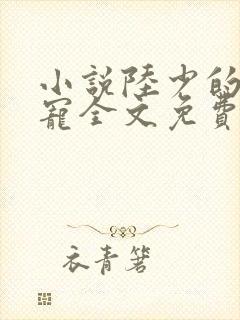 小說陸少的
寵全文免費
衣青箬